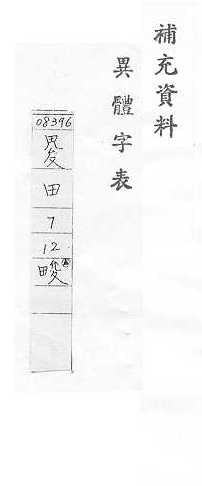 補充資料
異體字表
08396
田
7
12
畯